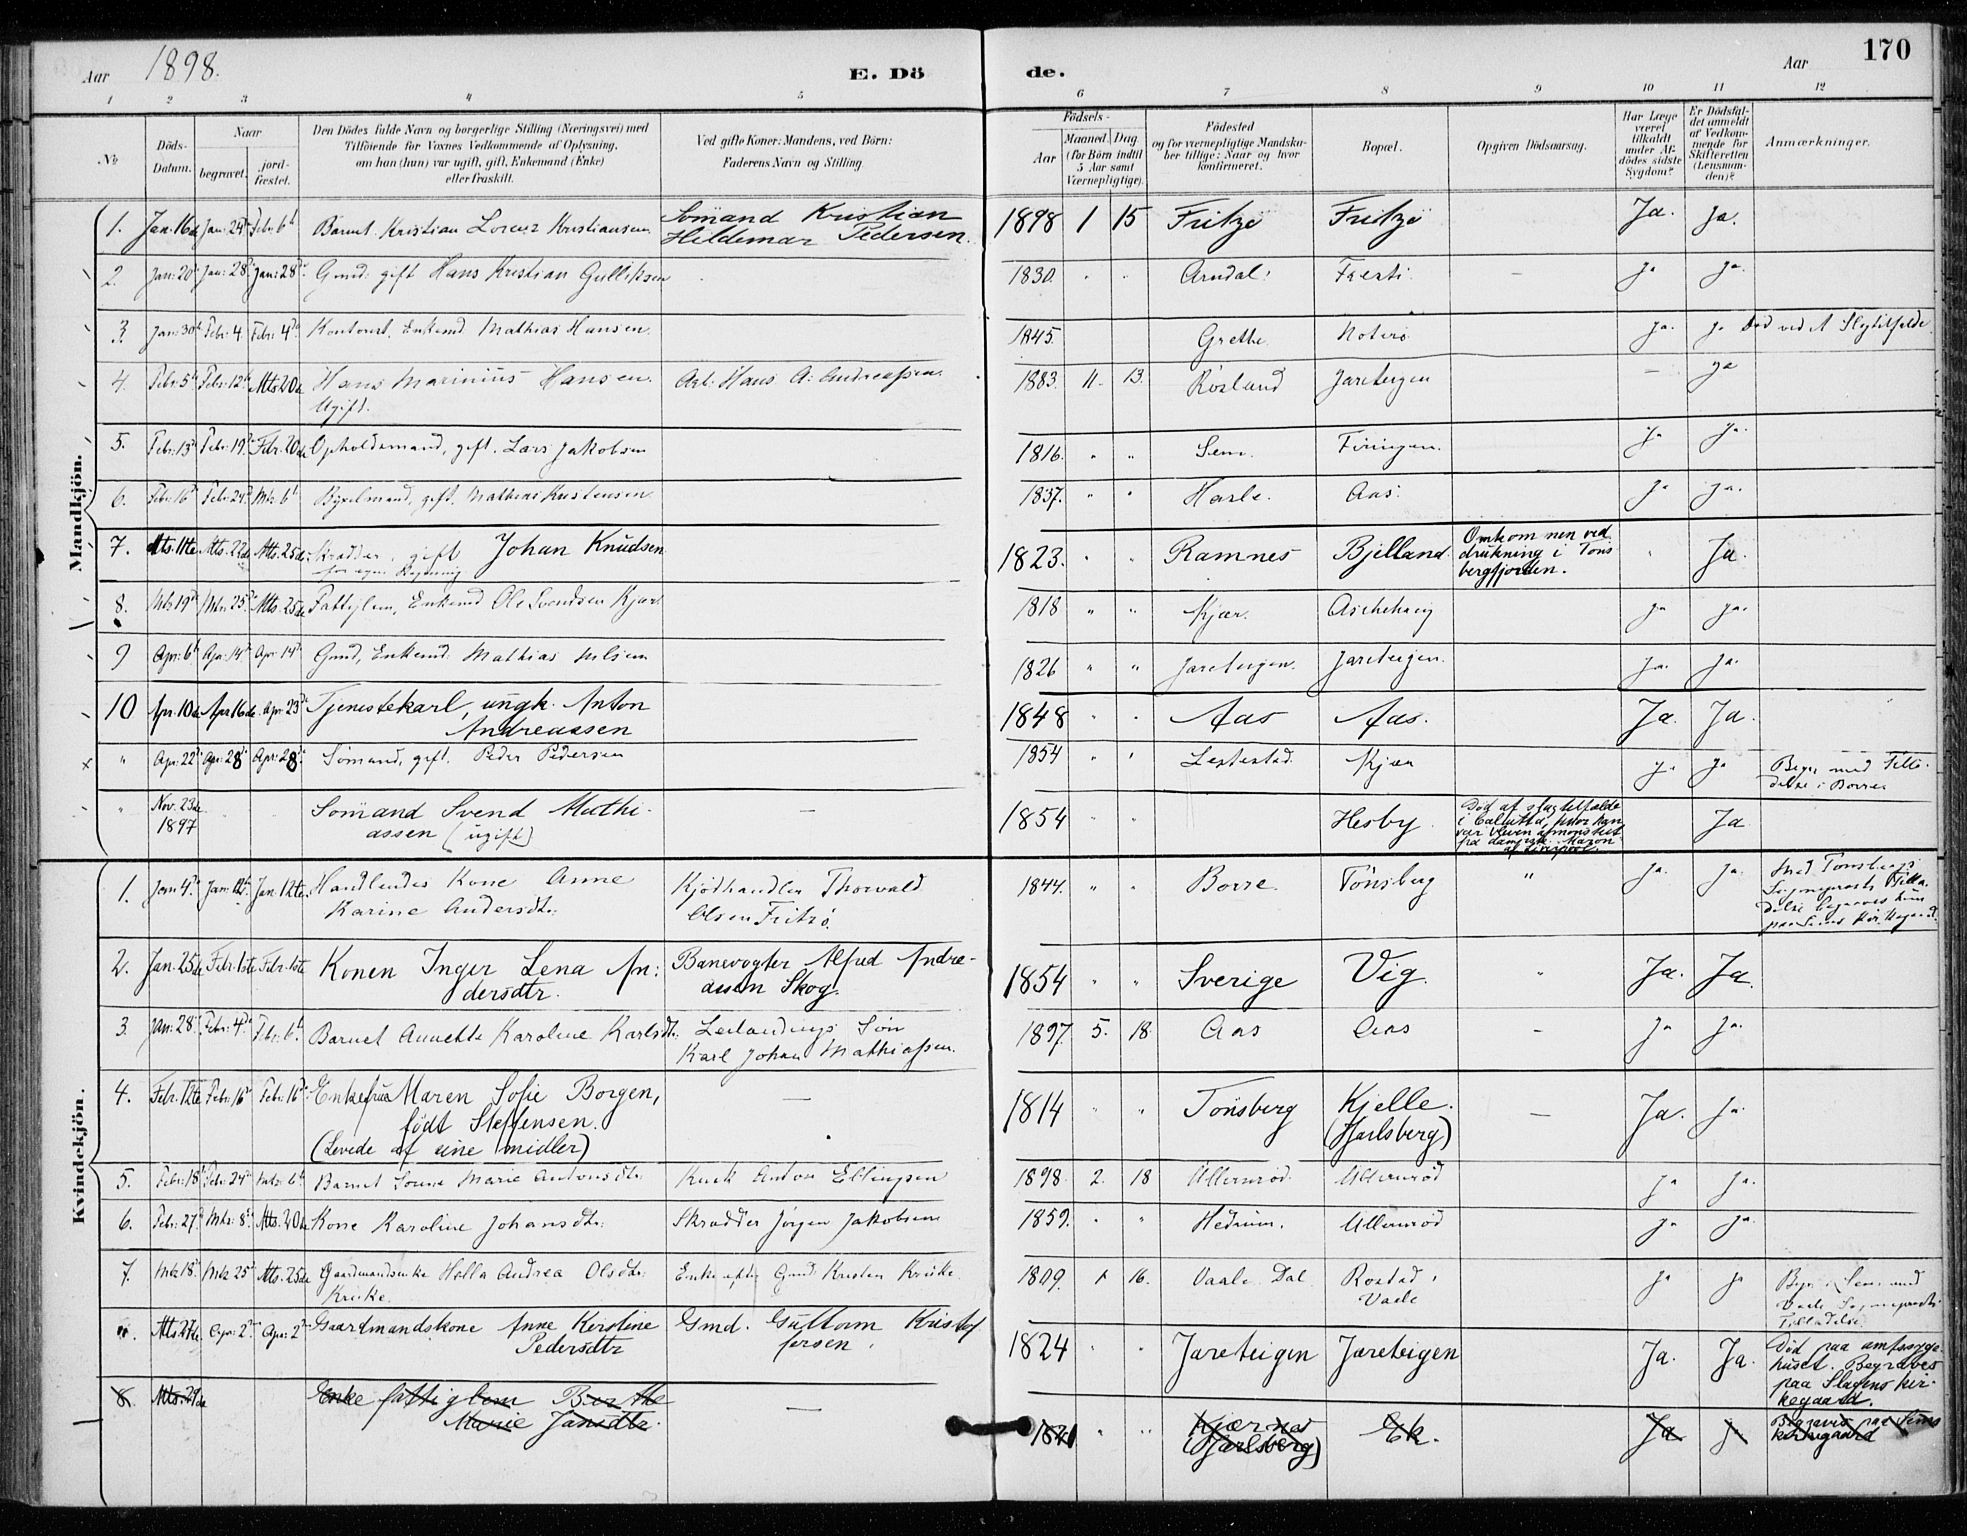 Aar 1898. E. Döde. Aar 170
1 2 3 4 5 6 7 8 9 10 11 12
No
Döds-Datum.
Naar
begravet.
jord-fæstet.
Den Dödes fulde Navn og borgerlige Stilling (Næringsvei) med
Tilföiende for Voxnes Vedkommende af Oplysning,
om han (hun) var ugift, gift, Enkemand (Enke)
eller fraskilt.
Ved gifte Koner: Mandens, ved Börn:
Faderens Navn og Stilling.
Födsels-
Aar
Maaned. Dag.
(for Börn indtil
5 Aar samt
Værnepligtige).
Födested
og for værnepligtige Mandska-
ber tillige: Naar og hvor
konfirmeret.
Bopæl.
Opgiven Dödsaarsag.
Har Læge
været
tilkaldt
under Af-
dödes sidste
Sygdom?
Er Dödsfal-
det anmeldt
af Vedkom-
mende for
Skifteretten
(Lensman-
den)?
Anmærkninger.
Mandkjön.
1. Jan. 16de Jan: 24de Febr: 6te Barnet Kristian Lorenz Kristiansen Sömand Kristian Hildemar Pedersen. 1898 1 15 Fritzö Fritzö Ja. Ja.
2. Jan: 20de Jan: 28de Jan: 28de Gmd: gift Hans Kristian Gulliksen 1830. " " Arndal: — Ja Ja.
3. Jan: 30te Febr: 4 Febr: 4de Enkemd Mathias Hansen. 1845. Grette Noterö Ja. Ja Död ved et
4. Febr: 5te Febr: 12te Mts. 20de Hans Marinius Hansen. Ugift. Arb. Hans A: Andreassen. 1883. 11. 13. Röeland Jareteigen — Ja
5. Febr: 13de Febr: 19de Febr. 20de Opholdsmand, gift. Lars Jakobsen 1816. " " Sem. Ja Ja.
6. Febr: 16de Febr: 24de Mts. 6te Byxelmand, gift. Mathias Kristensen 1837. " " Aas. Ja Ja.
7. Mts. 11te Mts. 22de Mts. 25de Skrædder, gift Johan Knudsen for egen Regning 1823. " " Ramnes Bjelland. Omkommen ved drukning i Tönsbergfjorden. " Ja.
8. Mts 19de Mts. 25de Mts. 25de Fattiglem, Enkemd Ole Svendsen Kjær 1818 " " Kjær. Aschehaug Ja Ja.
9 Apr: 6te Apr: 14de Apr: 14de Gmd, Enkemd. Mathias Nilsen 1826 " " Jareteigen. Jareteigen. Ja. Ja.
10 Apr. 10de Apr 16de Apr: 23de Tjenestekarl, ungk. Anton Andreassen 1848 " " Aas Aas. Ja. Ja.
" Apr: 22de Apr: 28de Apr: 28de Sömand, gift. Peder Pedersen 1854 " " Kjær Ja Ja Begr. med Tilladelse i Borre
" Nov. 23de 1897 " " Sömand Svend Mathiassen (ugift) — 1854 " " Hesby Död af slagtilfælde i Calcutta, hvor han var bleven afmönstret fra dampsk. af Liverpool. Ja
Kvindekjön.
1. Jan 4de Jan: 12te Jan. 12te Handlendes Kone Anne Karine Andersdtr: Kjödhandler Thorvald Olsen Fritzö. 1844. " " Borre. Tönsberg " Ja. Ja. Med Tönsbergs Sognepræsts Tilladelse begraves hun paa Sems Kirkegaard.
2. Jan. 25de Febr. 1ste Febr. 1ste Konen Inger Lena Andersdtr. Banevogter Alfred Andreassen Skog. 1854 " " Sverige Vig. " Ja. Ja.
3 Jan: 28de Febr: 4de Febr: 6te Barnet Annette Karoline Karlsdtr: Leilændings Sön Karl Johan Mathiassen. 1897 5. 18. Aas Aas — Ja Ja.
4. Febr. 12te Febr: 16de Febr: 16de Enkefrue Maren Sofie Borgen, födt Steffensen. (Levede af sine midler) — 1814 " " Tönsberg Kjelle. (Jarlsberg) — Ja. Ja.
5. Febr: 18de Febr: 24de Mts. 6te Barnet Marie Antonsdtr. Anton Ellingsen 1898. 2. 18 Ullernröd Ullernröd Ja Ja.
6. Feb: 27de Mts. 8de Mts. 20de Kone Karoline Johansdtr: Skrædder Jörgen Jakobsen 1859. " " Hedrum. Ullernröd Ja Ja.
7. Mts 18de Mts 25de Mts. 25de Gaardmandsenke Andrea Olsdtr: Krikke. Enke efter Gmd. Kristen Krikke. 1809. 1 16. Vaale Vaale Ja Ja Begr. i Sem med Vaale Sognepræsts Tilladelse
". Mts. 27de Apr: 2den Apr: 2den Gaardmandskone Anne Kerstine Pedersdtr Gmd. Guttorm Kristoffersen. 1824 " " Jareteigen Jareteigen Ja. Ja. Död paa amtssygehuset. Begraves paa Slagens kirkegaard.
8 Mts. 29de Enke fattiglem Berthe Marie Jansdtr. — 1821 " " Kjærnes (Jarlsberg) Ek. Ja J. Begraves paa Sems kirkegaard